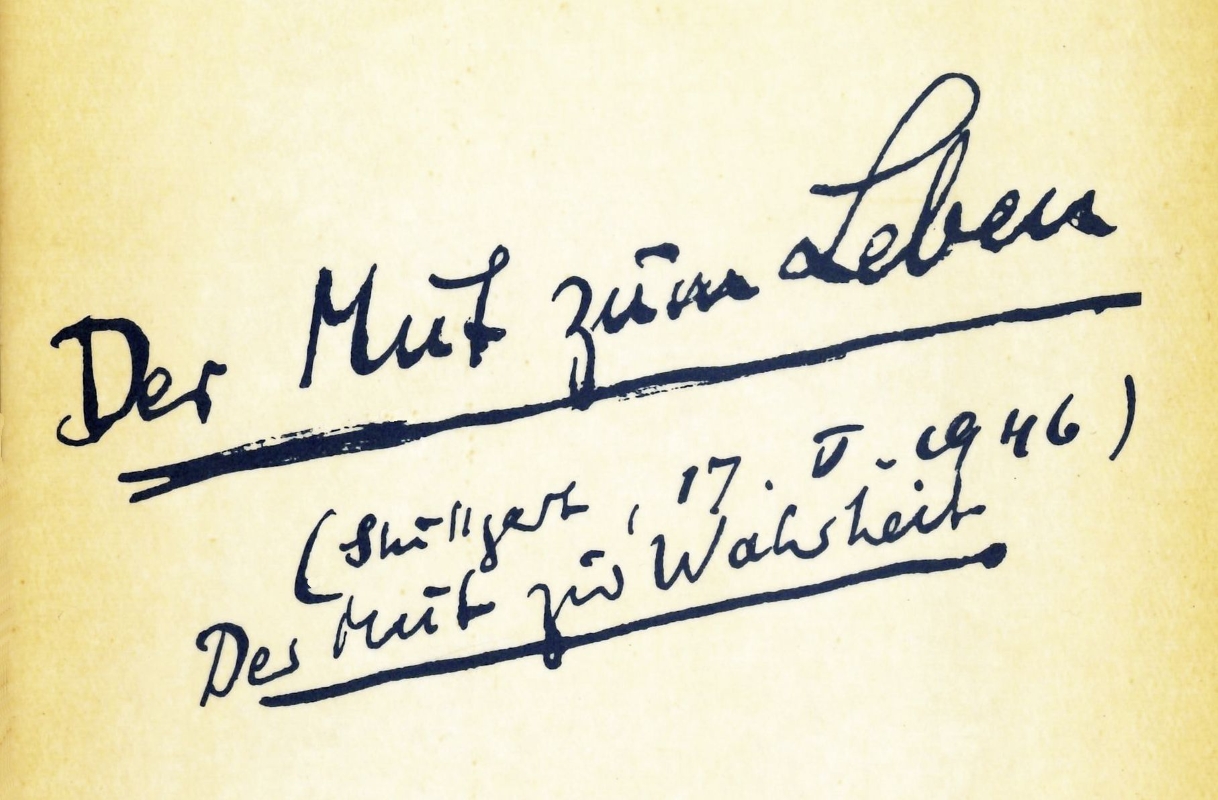 Der Mut zum Leben
(Stuttgart, 17. V. 1946)
Der Mut zur Wahrheit